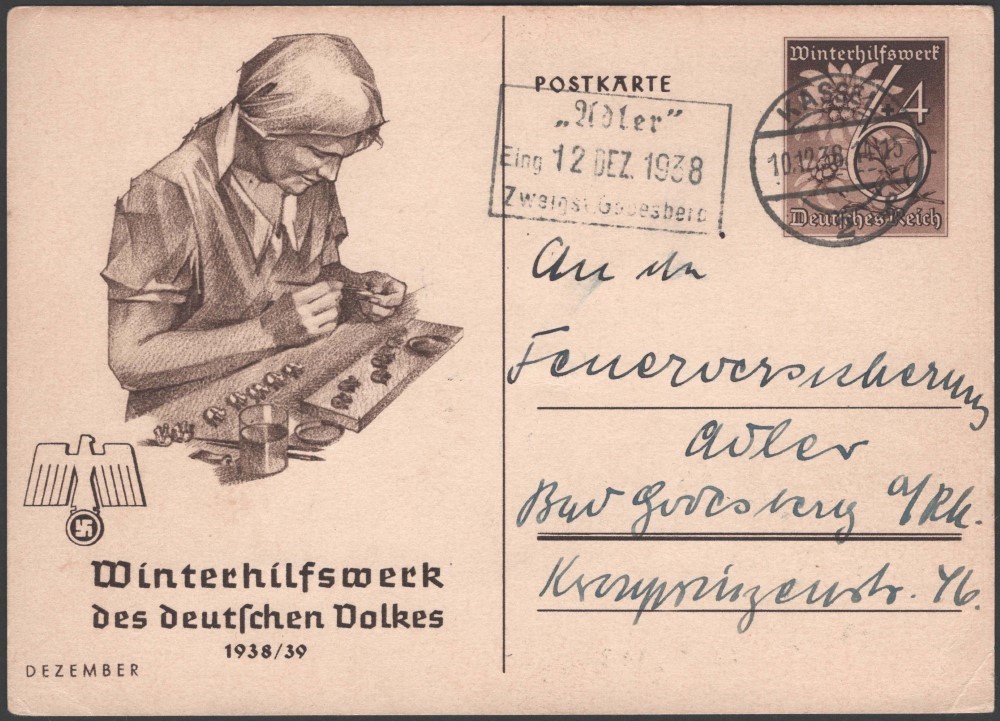 Winterhilfswerk
des deutschen Volkes
1938/39
DEZEMBER
POSTKARTE
„Adler”
Eing 12 DEZ. 1938
Zweigst. Godesberg
Winterhilfswerk
6+4
Deutsches Reich
KASSEL
10.12.38
2
An die
Feuerversicherung
Adler
Bad Godesberg a/Rh.
Kronprinzenstr. 46.